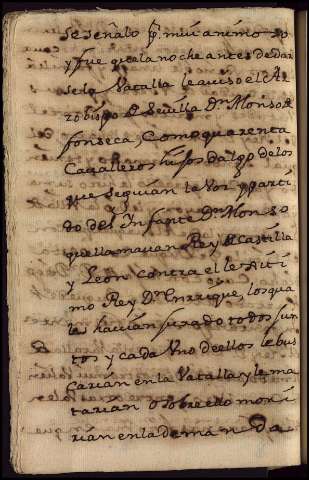 se señalo pr. mui animoso
y fue que la noche antes de dar
se la Vatalla le aviso el Ar
zobispo de Sevilla Dn. Alonso de
fonseca, Como quarenta
Cavalleros hijos dalgo de los
que seguian le Voz y parti
do del Infante Dn. Alonso
que llamavan Rey de Castilla
y Leon Contra el lexiti
mo Rey Dn. Enrrique, los qua
les havian jurado todos jun
tos y cada Uno de ellos le bus
Carian en la Vatalla y le ma
tarian o sobre ello mori
rian en la demanda